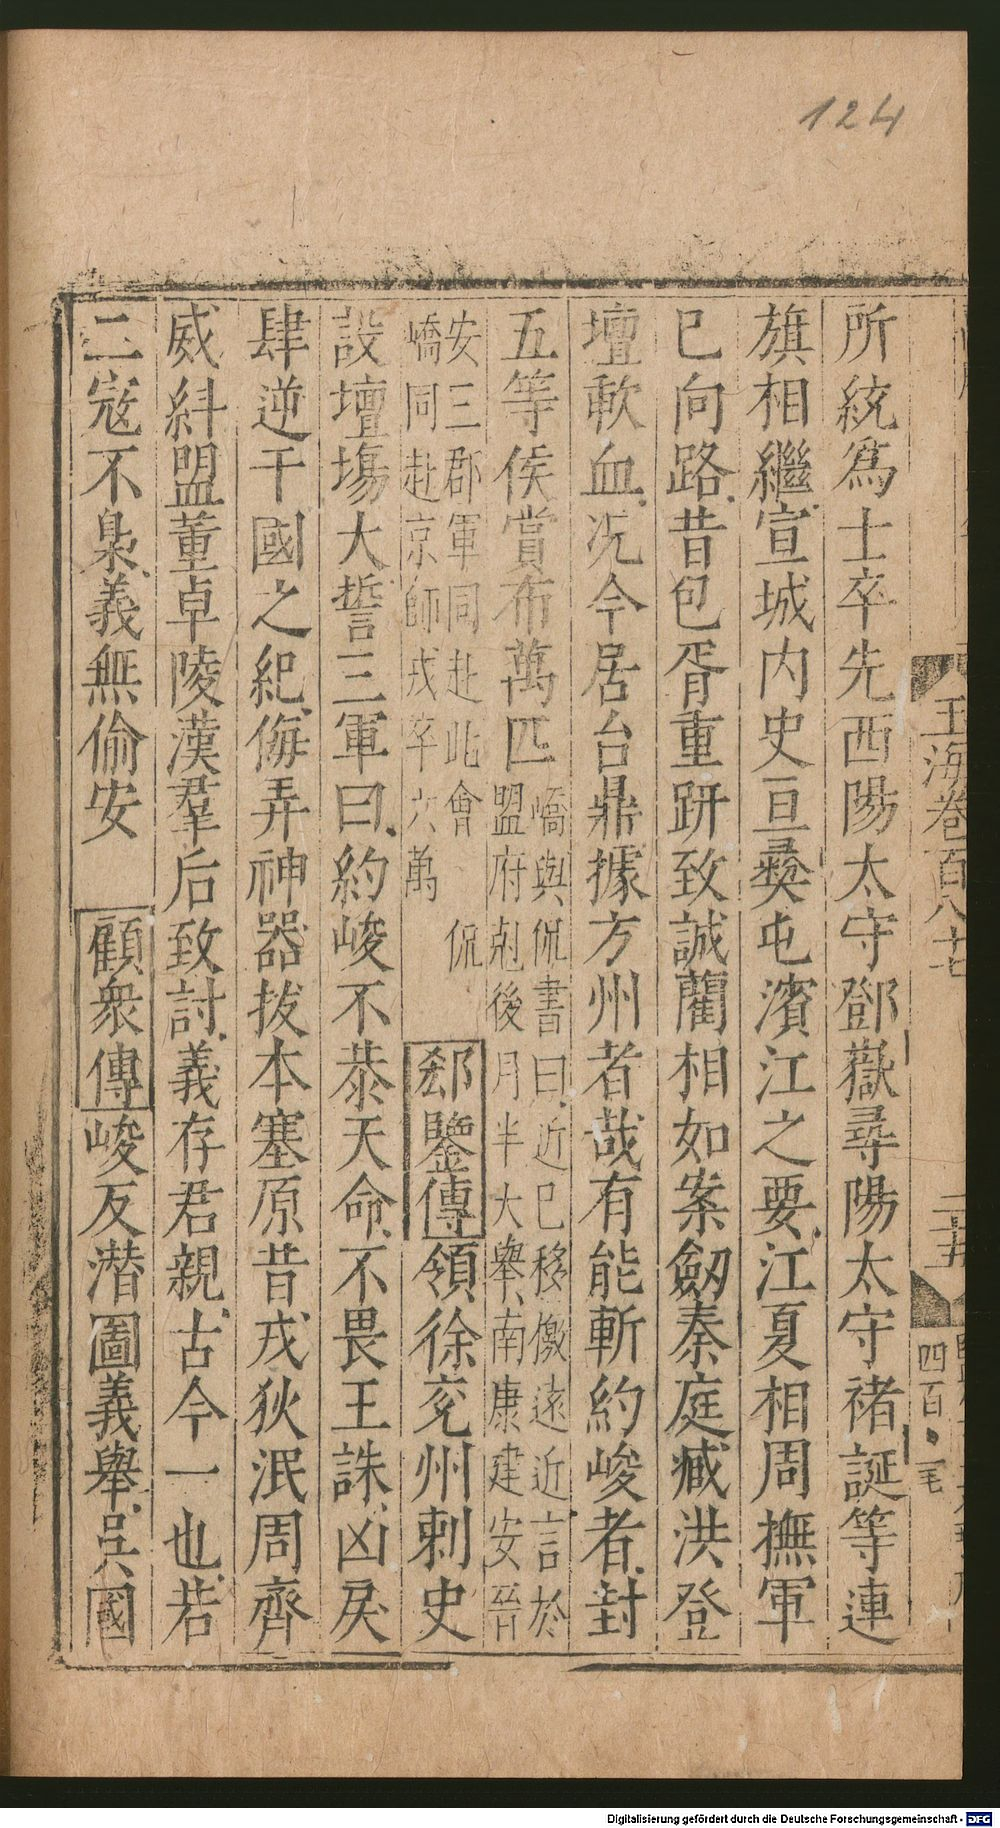 124
所統爲士卒先西陽太守鄧嶽尋陽太守褚誕等連
旗相繼宣城内史亘彜屯濱江之要江夏相周撫軍
已向路昔包胥重趼致誠藺相如案劒秦庭臧洪登
壇歃血况今居台鼎據方州者哉有能斬約峻者封
五等侯賞布萬匹嶠與侃書曰近已移儌遠近言於
盟府尅後月半大舉南康建安晉
安三郡軍同赴此會侃
嶠同赴京師戎卒六萬
郄鑒傳領徐兖州刺史
設壇場大誓三軍曰約峻不恭天命不畏王誅凶戾
肆逆干國之紀侮弄神器拔本塞原昔戎狄泯周齊
威糾盟董卓陵漢羣后致討義存君親古今一也若
二寇不梟義無偷安　顧衆傳峻反潛圖義舉吳國
玉海卷百八十七
二十五
四百
Digitalisierung gefördert durch die Deutsche Forschungsgemeinschaft - DFG